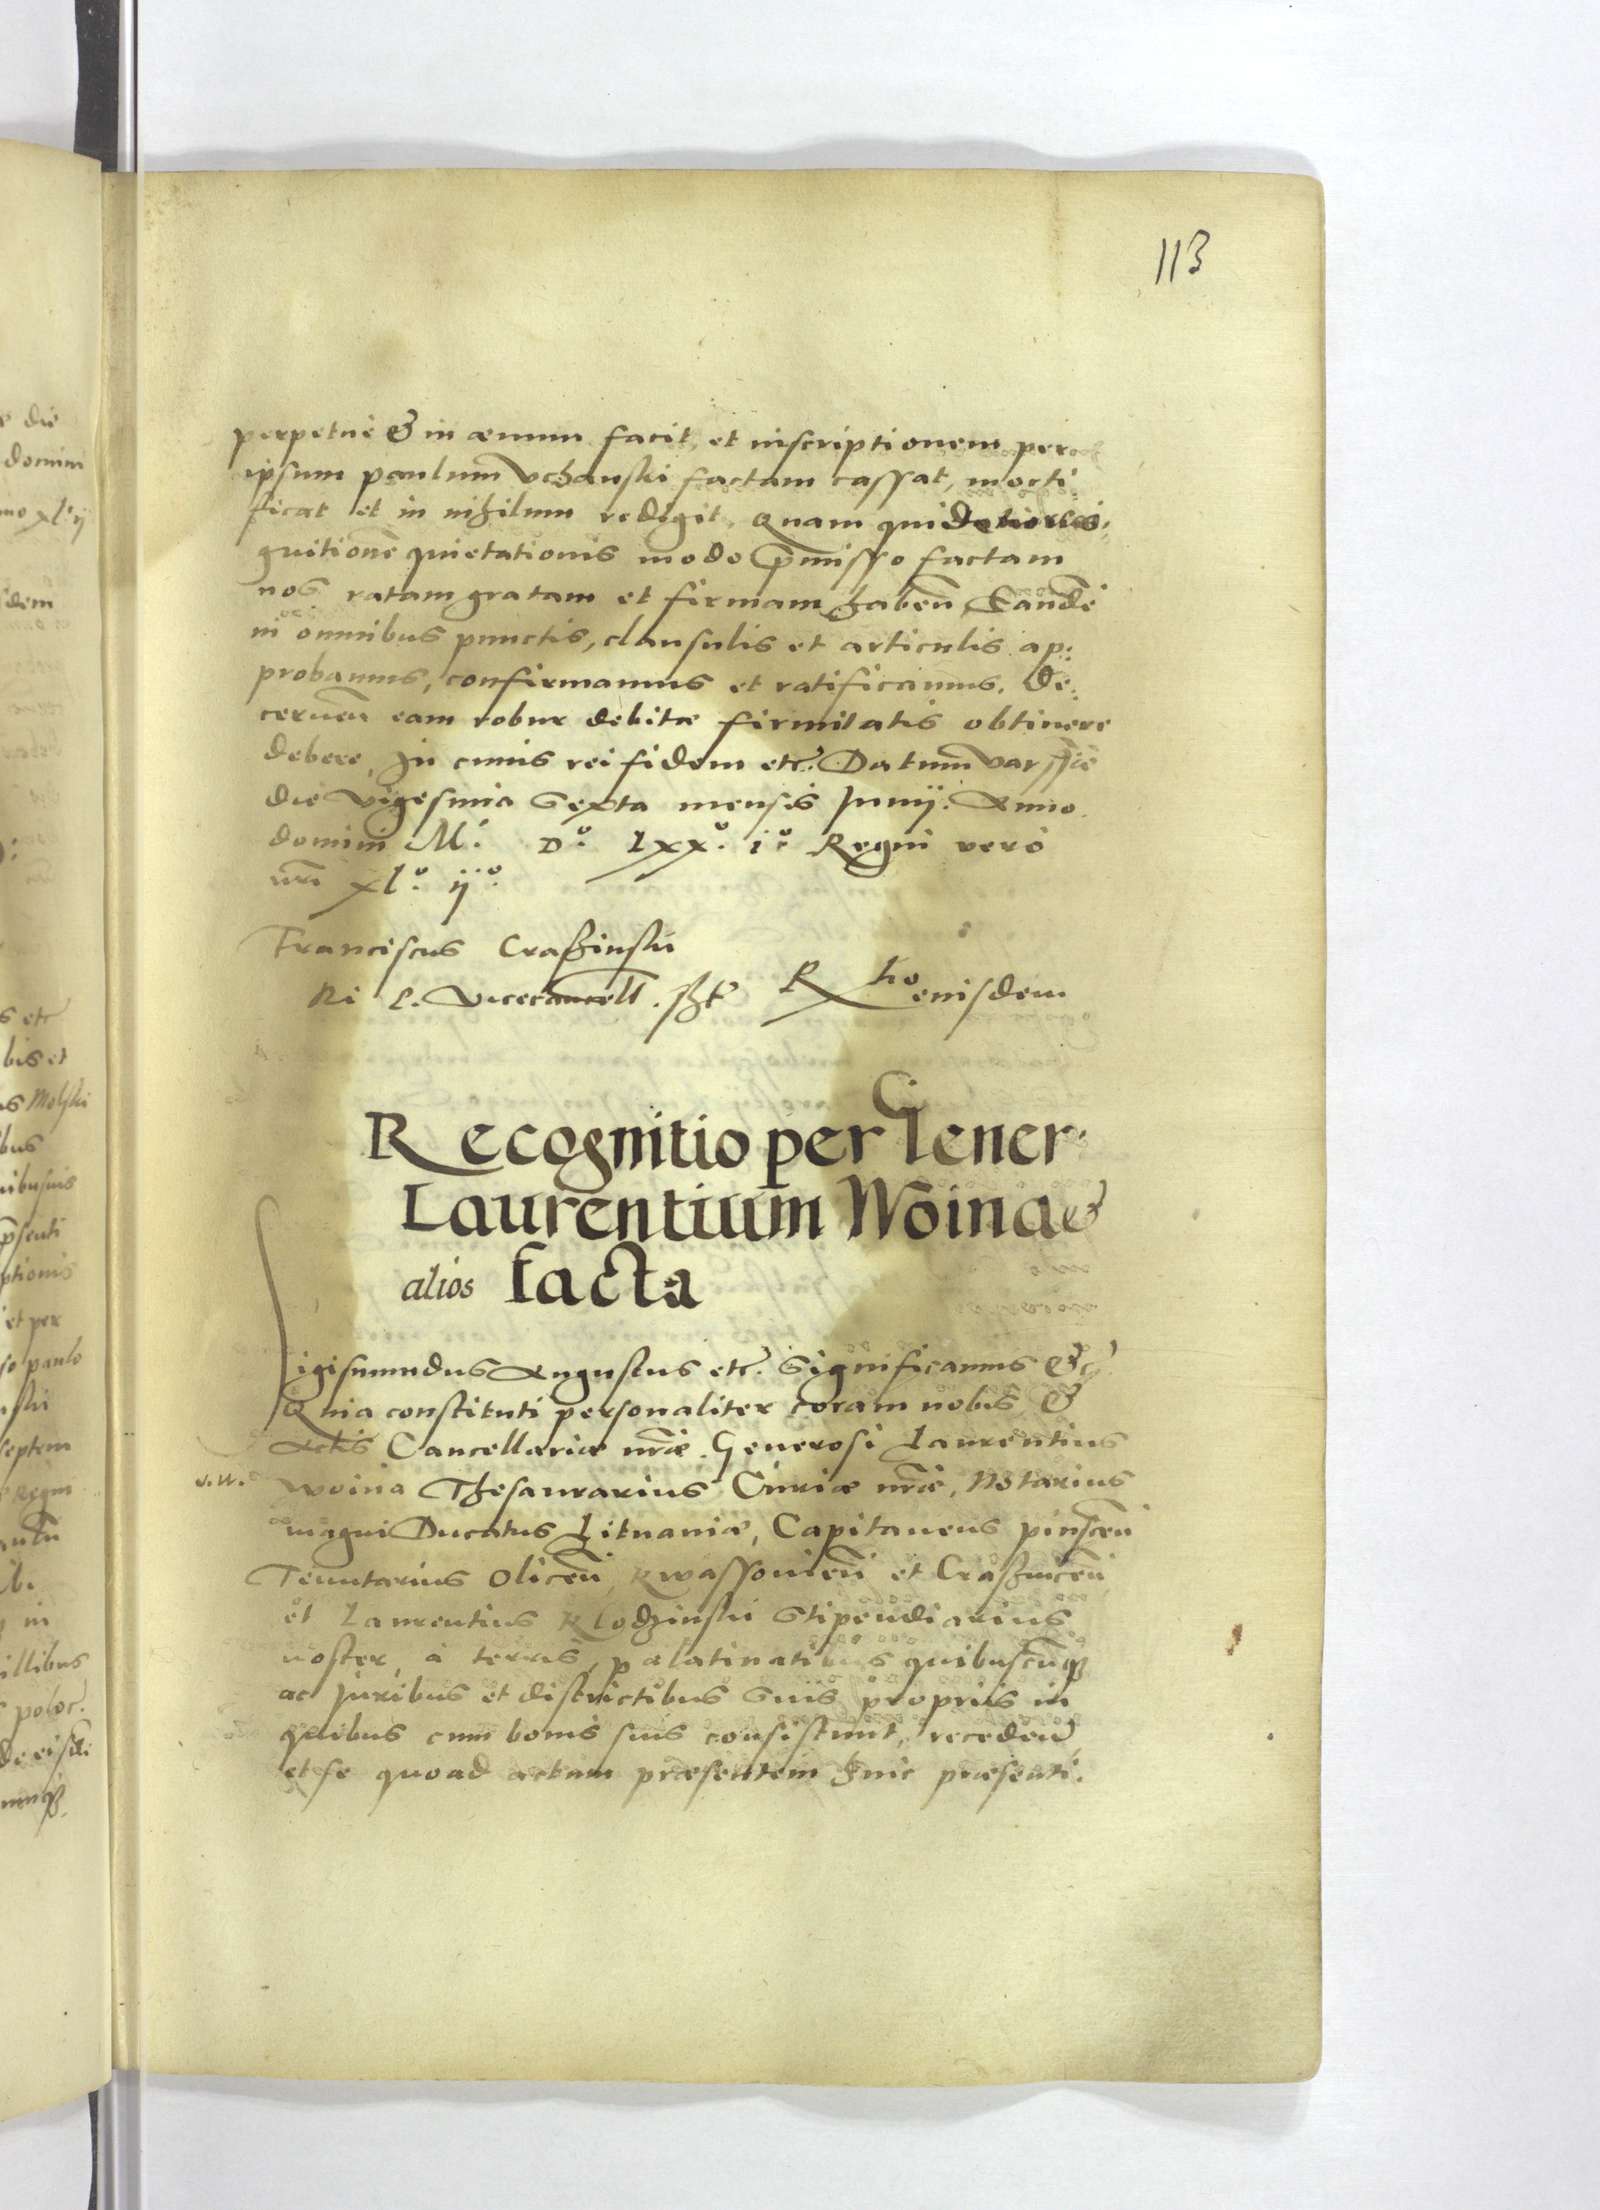 113
perpetue & in aeuum facit, et inscriptionem per
ipsum paulum Vchanski factam cassat, morti
ficat et in nihilum redigit. Quam quidem
gnitionẽ quietationis modo p̃misso factam
nos ratam gratam et firmam habeñ Eandẽ
in omnibus punctis, clausulis et articulis ap:
probamus, confirmamus et ratificamus. De:
cerneñ eam robur debitae firmitatis obtinere
debere, In cuius rei fidem etc. Datum varssie
die vigesima Sexta mensis Junij. Anno
domini Mº. Dº. Lxxº. iº Regni vero
nr̃i xlº. ijº.
Franciscus Crasinski
R. P. Vicecancell. sst Rtio eiusdem
Recognitio per Gener:
Laurentium Woina &
alios facta
Sigismundus Augustus etc. Significamus &c
Quia constituti personaliter coram nobis &
Actis Cancellariae nr̃ae Generosi Laurentius
J. W.
Woina Thesaurarius Curiae nr̃ae, Notarius
magni Ducatus Lituaniae, Capitaneus pinsceñ
Tenutarius Oliceñ, Kwassowieñ et Crasniceñ
et Laurentius Klodzinski Stipendiarius
noster, à terris, palatinatibus quibuscũq
ac Juribus et districtibus Suis proprijs in
quibus cum bonis suis consistunt, recedeñ
et se quoad actum praesentem huic praesenti.
e die
domini
mo xlº ij
s etc
bis et
us Molski
ibus
p̃senti
ptionis
et per
so paulo
nski
septem
Regni
in
illibus
poloc.